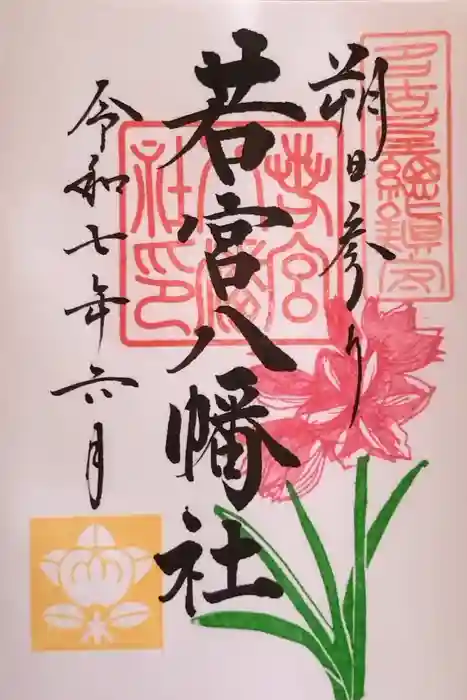 朔日参り
若宮八幡社
令和七年六月
名古屋總鎮守
若宮八幡社印